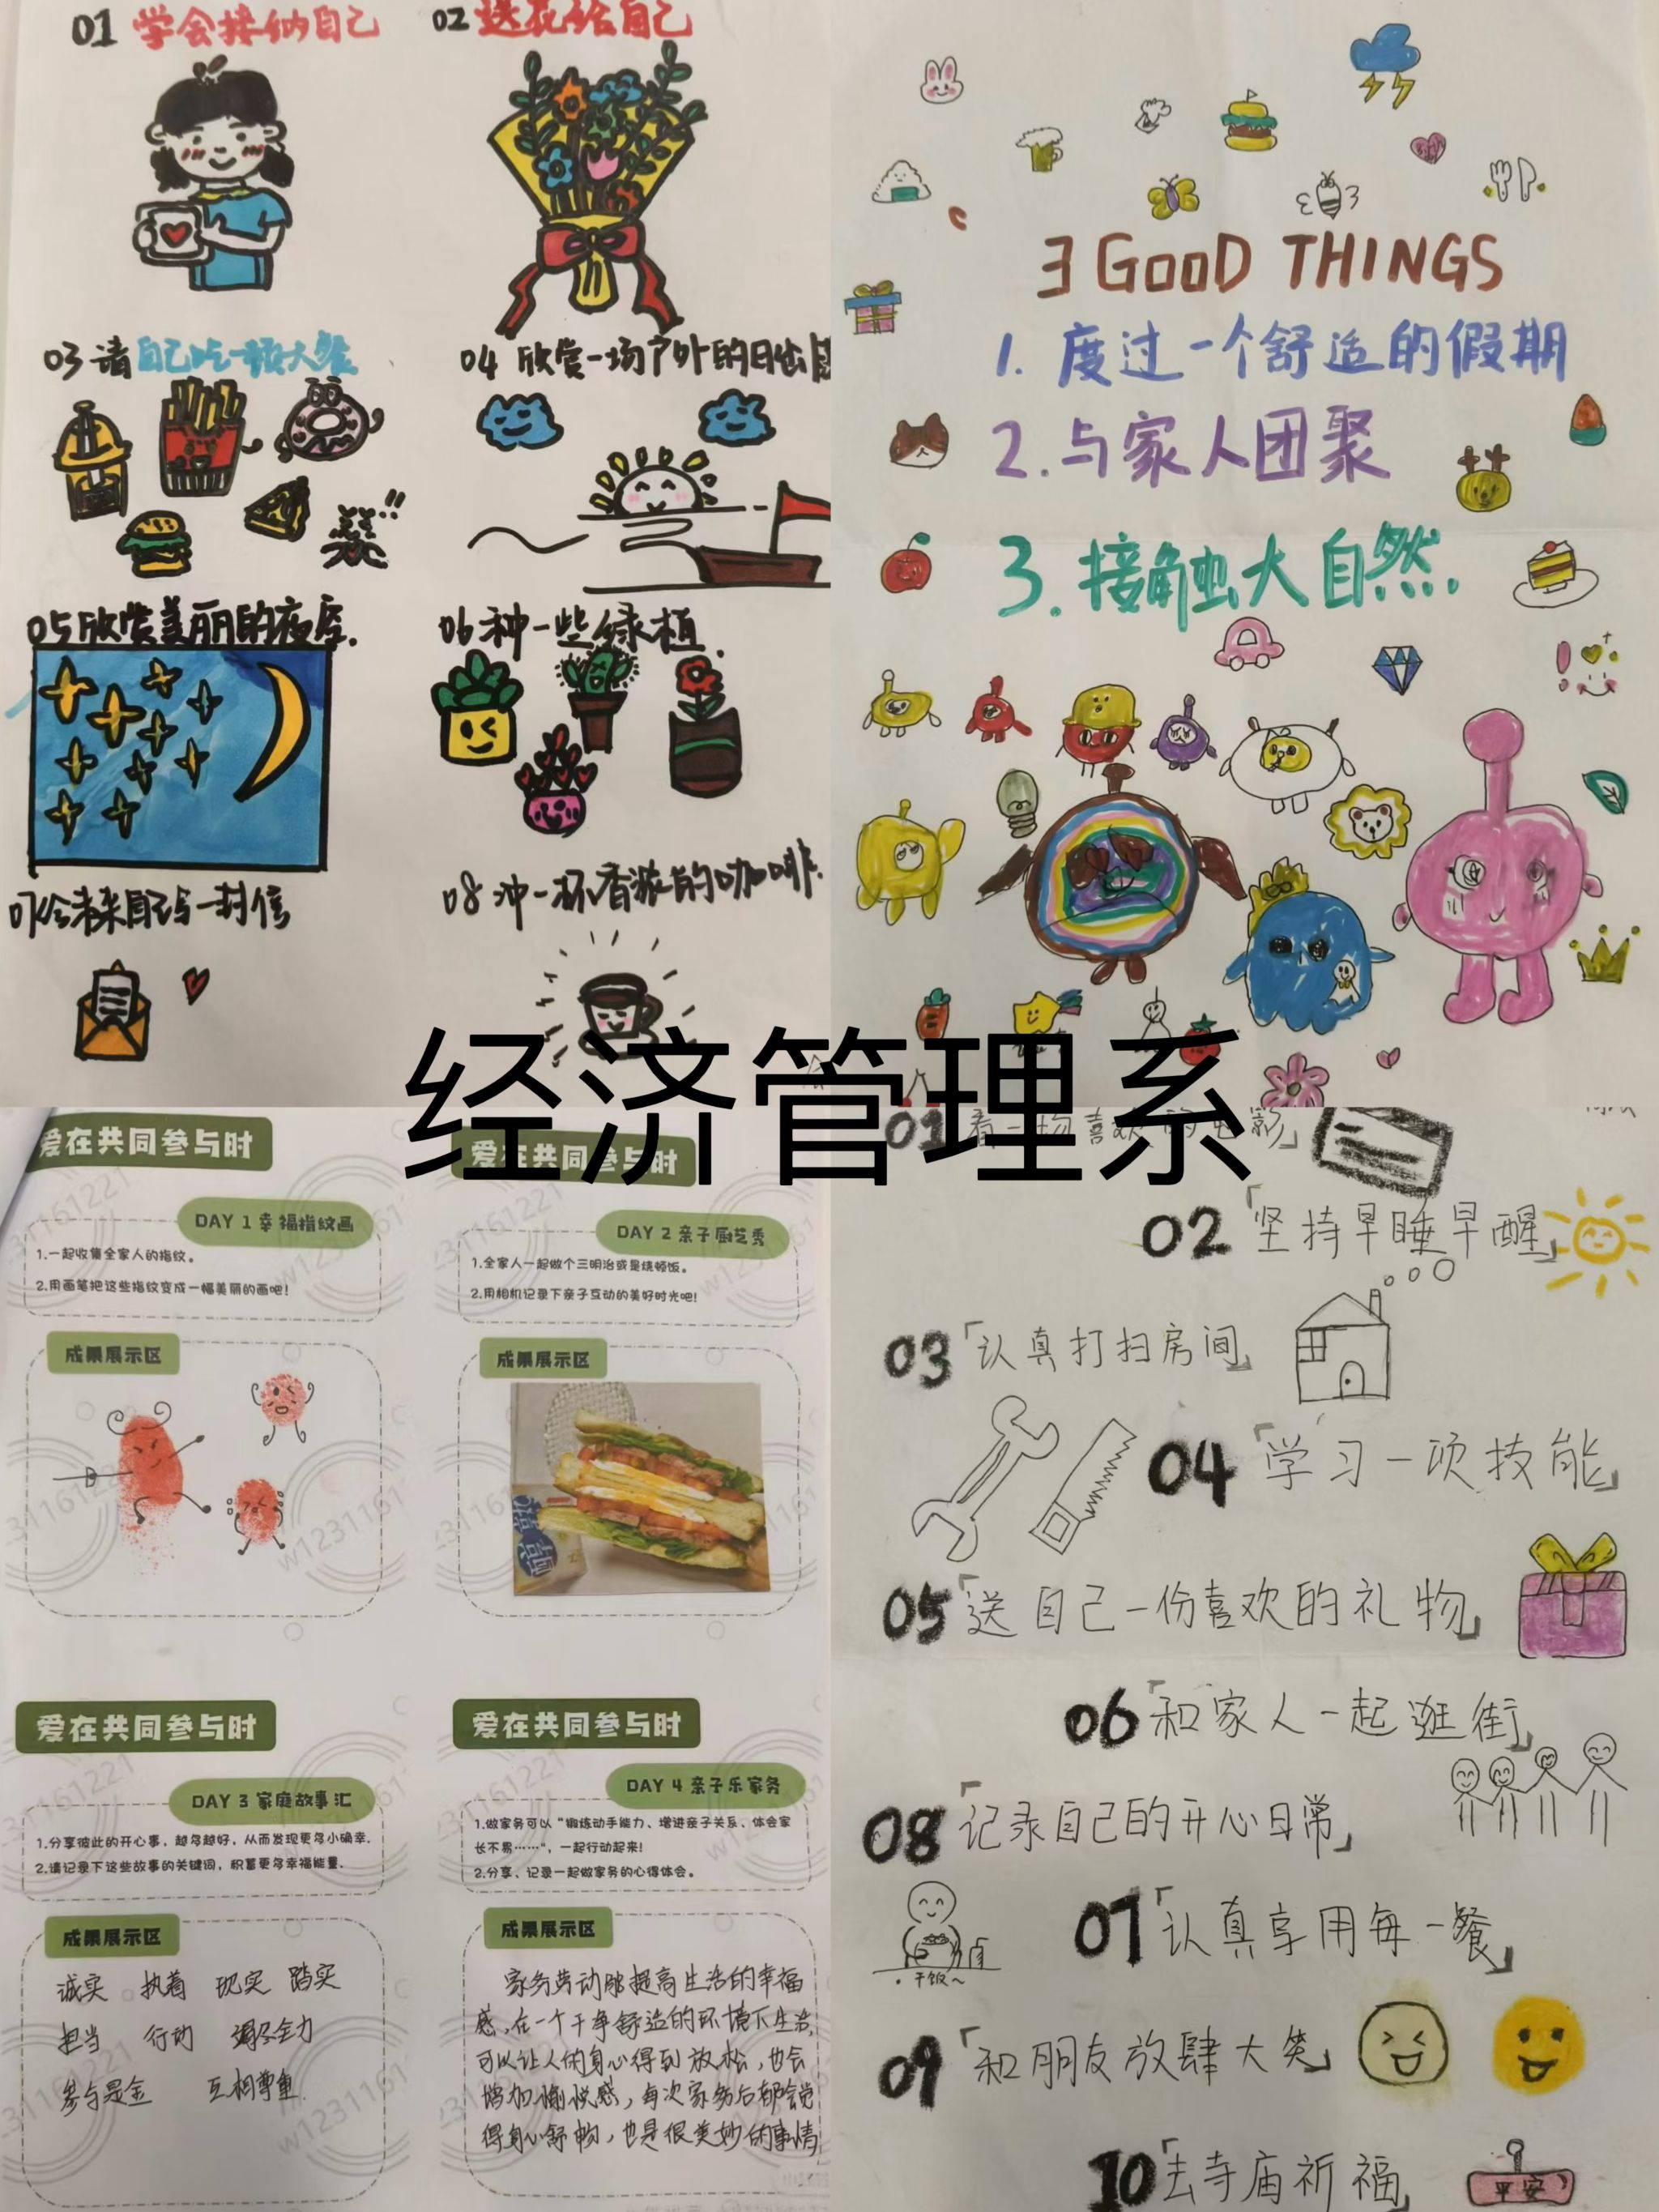 01 学会接纳自己
02 送花给自己
03 请自己吃一顿大餐
04 欣赏一场户外的日出
05 欣赏美丽的夜空.
06 种一些绿植.
07 给未来自己写一封信
08 冲一杯香浓的咖啡.
3 GOOD THINGS
1. 度过一个舒适的假期
2. 与家人团聚
3. 接触大自然.
经济管理系
爱在共同参与时
DAY 1 幸福指纹画
1.一起收集全家人的指纹。
2.用画笔把这些指纹变成一幅美丽的画吧!
成果展示区
爱在共同参与时
DAY 2 亲子厨艺秀
1.全家人一起做个三明治或是烧顿饭。
2.用相机记录下亲子互动的美好时光吧!
成果展示区
爱在共同参与时
DAY 3 家庭故事汇
1.分享彼此的开心事，越多越好，从而发现更多小确幸.
2.请记录下这些故事的关键词，积蓄更多幸福能量.
成果展示区
诚实 执着 现实 踏实
担当 行动 竭尽全力
参与是金 互相尊重.
爱在共同参与时
DAY 4 亲子乐家务
1.做家务可以“锻炼动手能力、增进亲子关系、体会家
长不易……”，一起行动起来!
2.分享、记录一起做家务的心得体会。
成果展示区
家务劳动能提高生活的幸福
感,在一个干净舒适的环境下生活,
可以让人的身心得到放松,也会
增加愉悦感,每次家务后都会觉
得身心舒畅,也是很美妙的事情
01「看一场喜欢的电影」
02「坚持早睡早醒」
03「认真打扫房间」
04「学习一项技能」
05「送自己一份喜欢的礼物」
06「和家人一起逛街」
08「记录自己的开心日常」
07「认真享用每一餐」
干饭~
09「和朋友放肆大笑」
10「去寺庙祈福」
平安
w1231161221